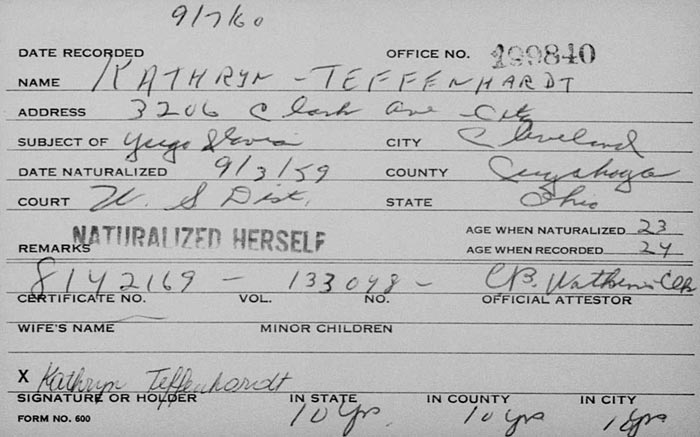 9/7/60
DATE RECORDED OFFICE NO. 199840
NAME KATHRYN - TEFFENHARDT
ADDRESS 3206 Clark Ave - City
SUBJECT OF Yugo Slavia CITY Cleveland
DATE NATURALIZED 9/3/59 COUNTY Cuyahoga
COURT U. S Dist. STATE Ohio
REMARKS NATURALIZED HERSELF AGE WHEN NATURALIZED 23
AGE WHEN RECORDED 24
8142169 - 133098 -
CERTIFICATE NO. VOL. NO. OFFICIAL ATTESTOR
WIFE'S NAME MINOR CHILDREN
X Kathryn Teffenhardt
SIGNATURE OR HOLDER IN STATE IN COUNTY IN CITY
FORM NO. 600 10 Yrs 10 yrs yrs